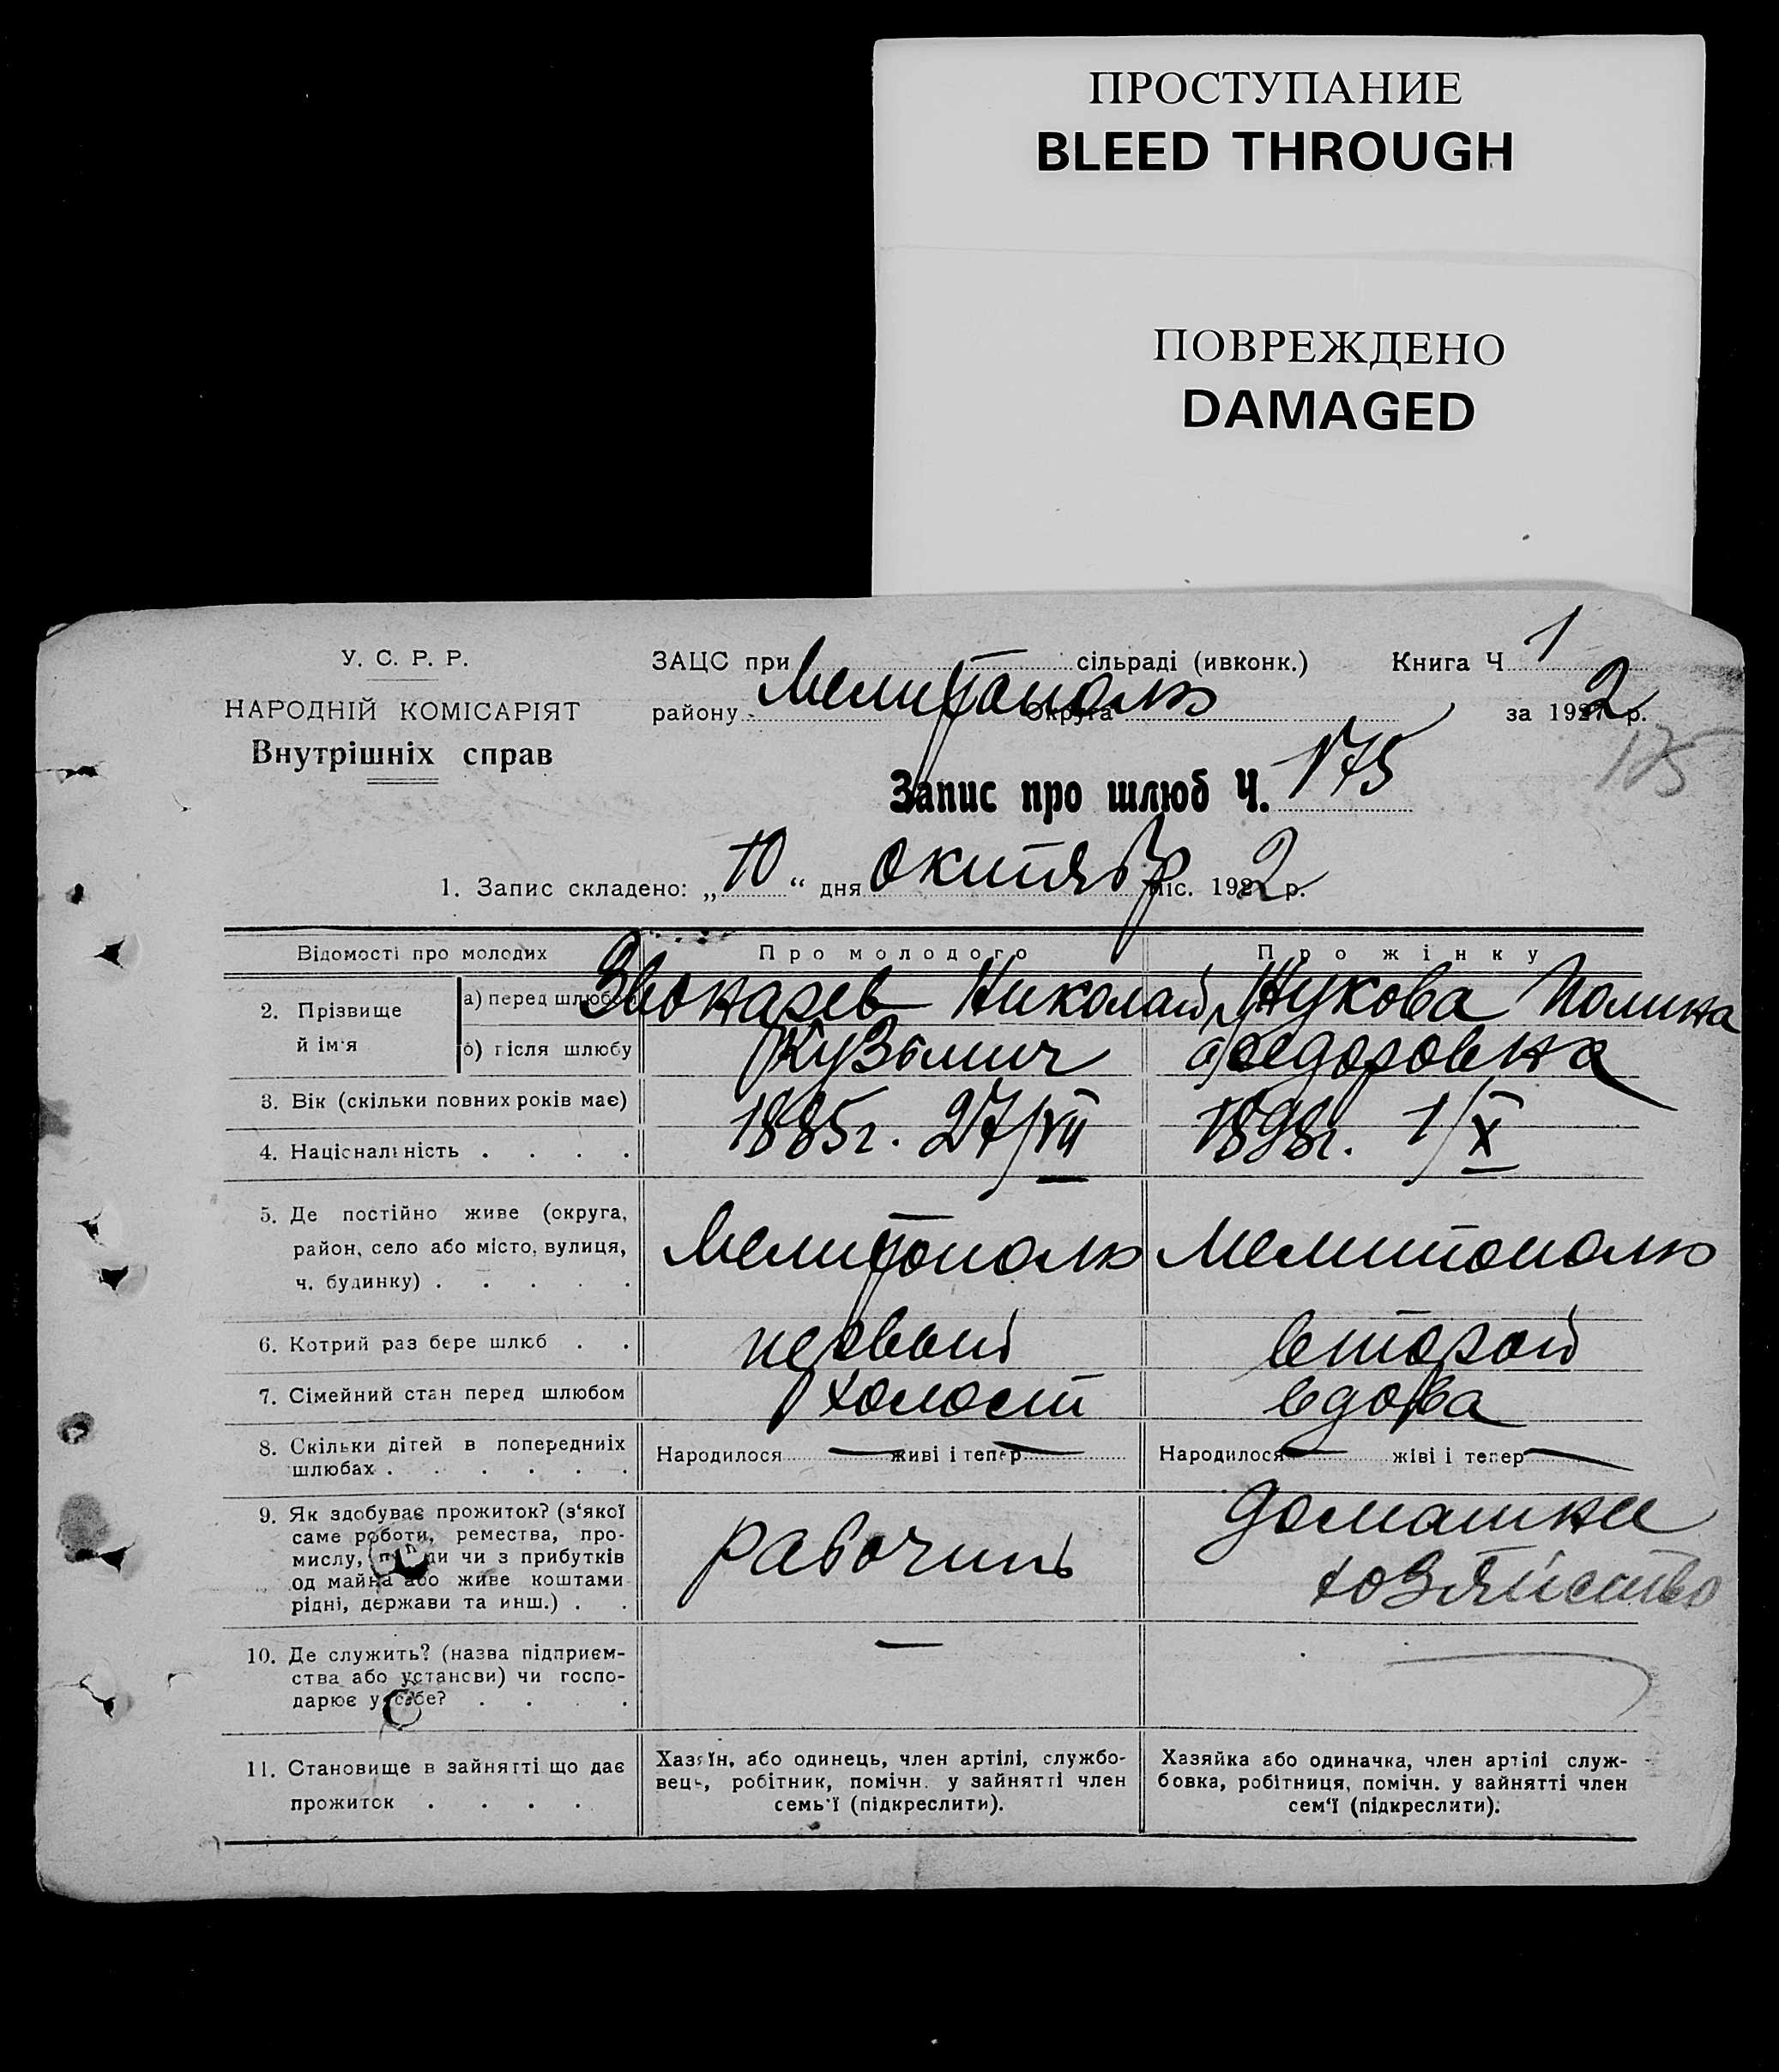 ПРОСТУПАНИЕ
BLEED THROUGH
ПОВРЕЖДЕНО
DAMAGED
У. С. Р. Р.
НАРОДНІЙ КОМІСАРІЯТ
Внутрішніх справ
ЗАЦС при сільраді (ивконк.) Книга Ч 1
Мелитополь
району Округа за 1922 р.
175
Запис про шлюб Ч. 175
1. Запис складено: „10“ дня октябр міс. 1922 р.
Відомості про молодих Про молодого Про жінку
2. Прізвище й ім'я
а) перед шлюбом Звонарев Николай Жукова Полина
б) після шлюбу Кузьмич Федоровна
3. Вік (скільки повних років має) 1885г. 27/VII 1898г. 1/X
4. Національність . . . .
5. Де постійно живе (округа,
район, село або місто, вулиця, Мелитополь Мелитополь
ч. будинку) . . . . .
6. Котрий раз бере шлюб . . первый второй
7. Сімейний стан перед шлюбом холост вдова
8. Скільки дітей в попередниіх Народилося — живі і тепер — Народилося — жіві і тепер —
шлюбах . . . . . .
9. Як здобуває прожиток? (з'якої домашнее
саме роботи, ремества, про-
мислу, чи з прибутків рабочий хозяйство
од майна або живе коштами
рідні, держави та инш.) . .
10. Де служить? (назва підприєм- —
ства або установи) чи госпо-
дарює у себе? . . . .
11. Становище в зайнятті що дає
прожиток . . . .
Хазяїн, або одинець, член артілі, службо-
вець, робітник, помічн. у зайнятті член
семь'ї (підкреслити).
Хазяйка або одиначка, член артілі служ-
бовка, робітниця, помічн. у зайнятті член
сем'ї (підкреслити).